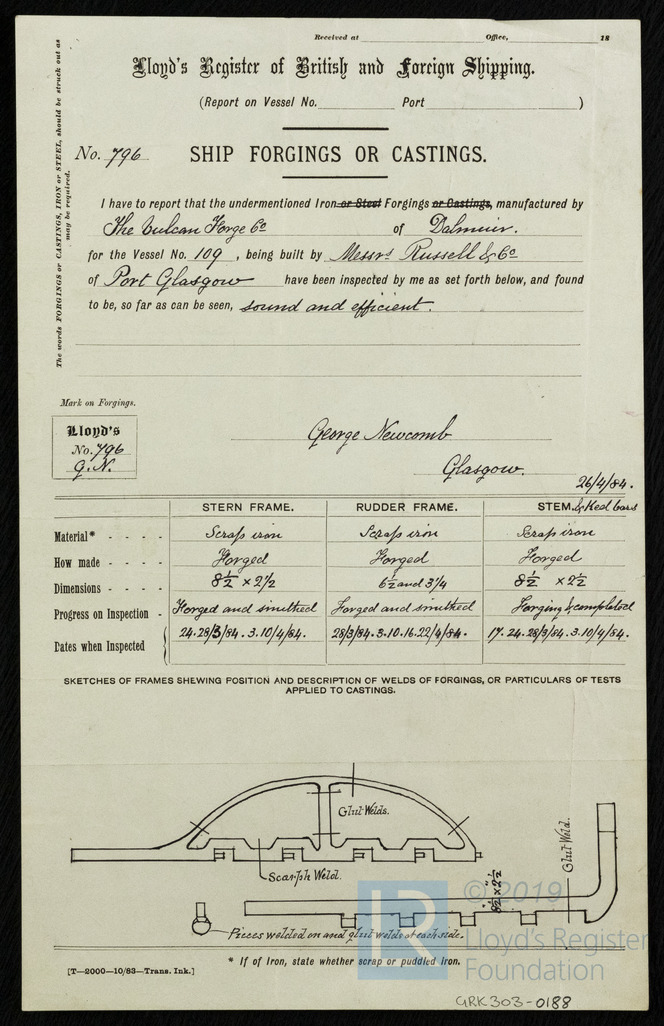 Received at Office, 18
Lloyd's Register of British and Foreign Shipping.
(Report on Vessel No. Port )
No. 796 SHIP FORGINGS OR CASTINGS.
The words FORGINGS or CASTINGS, IRON or STEEL, should be struck out as
may be required.
I have to report that the undermentioned Iron or Steel Forgings or Castings, manufactured by
The Vulcan Forge Co of Dalmuir.
for the Vessel No. 109, being built by Messrs Russell & Co
of Port Glasgow have been inspected by me as set forth below, and found
to be, so far as can be seen, sound and efficient.
Mark on Forgings.
Lloyd's
No. 796
G.N.
George Newcomb
Glasgow.
26/4/84.
STERN FRAME. RUDDER FRAME. STEM. & Keel bars
Material* - - - - Scrap iron Scrap iron Scrap iron
How made - - - - Forged Forged Forged
Dimensions - - - - 8½ × 2½ 6½ and 3¼ 8½ × 2½
Progress on Inspection - Forged and smithed Forged and smithed Forging & completed
Dates when Inspected 24.28/3/84. 3.10/4/84. 28/3/84. 3.10.16.22/4/84. 17.24.28/3/84. 3.10/4/84.
SKETCHES OF FRAMES SHEWING POSITION AND DESCRIPTION OF WELDS OF FORGINGS, OR PARTICULARS OF TESTS
APPLIED TO CASTINGS.
Glut Welds.
Scarph Weld.
Glut Weld.
8½" × 2½"
Pieces welded on and glut welds at each side.
* If of Iron, state whether scrap or puddled iron.
[T—2000—10/83—Trans. Ink.]
© 2019
LR
Lloyd's Register
Foundation
GRK303-0188